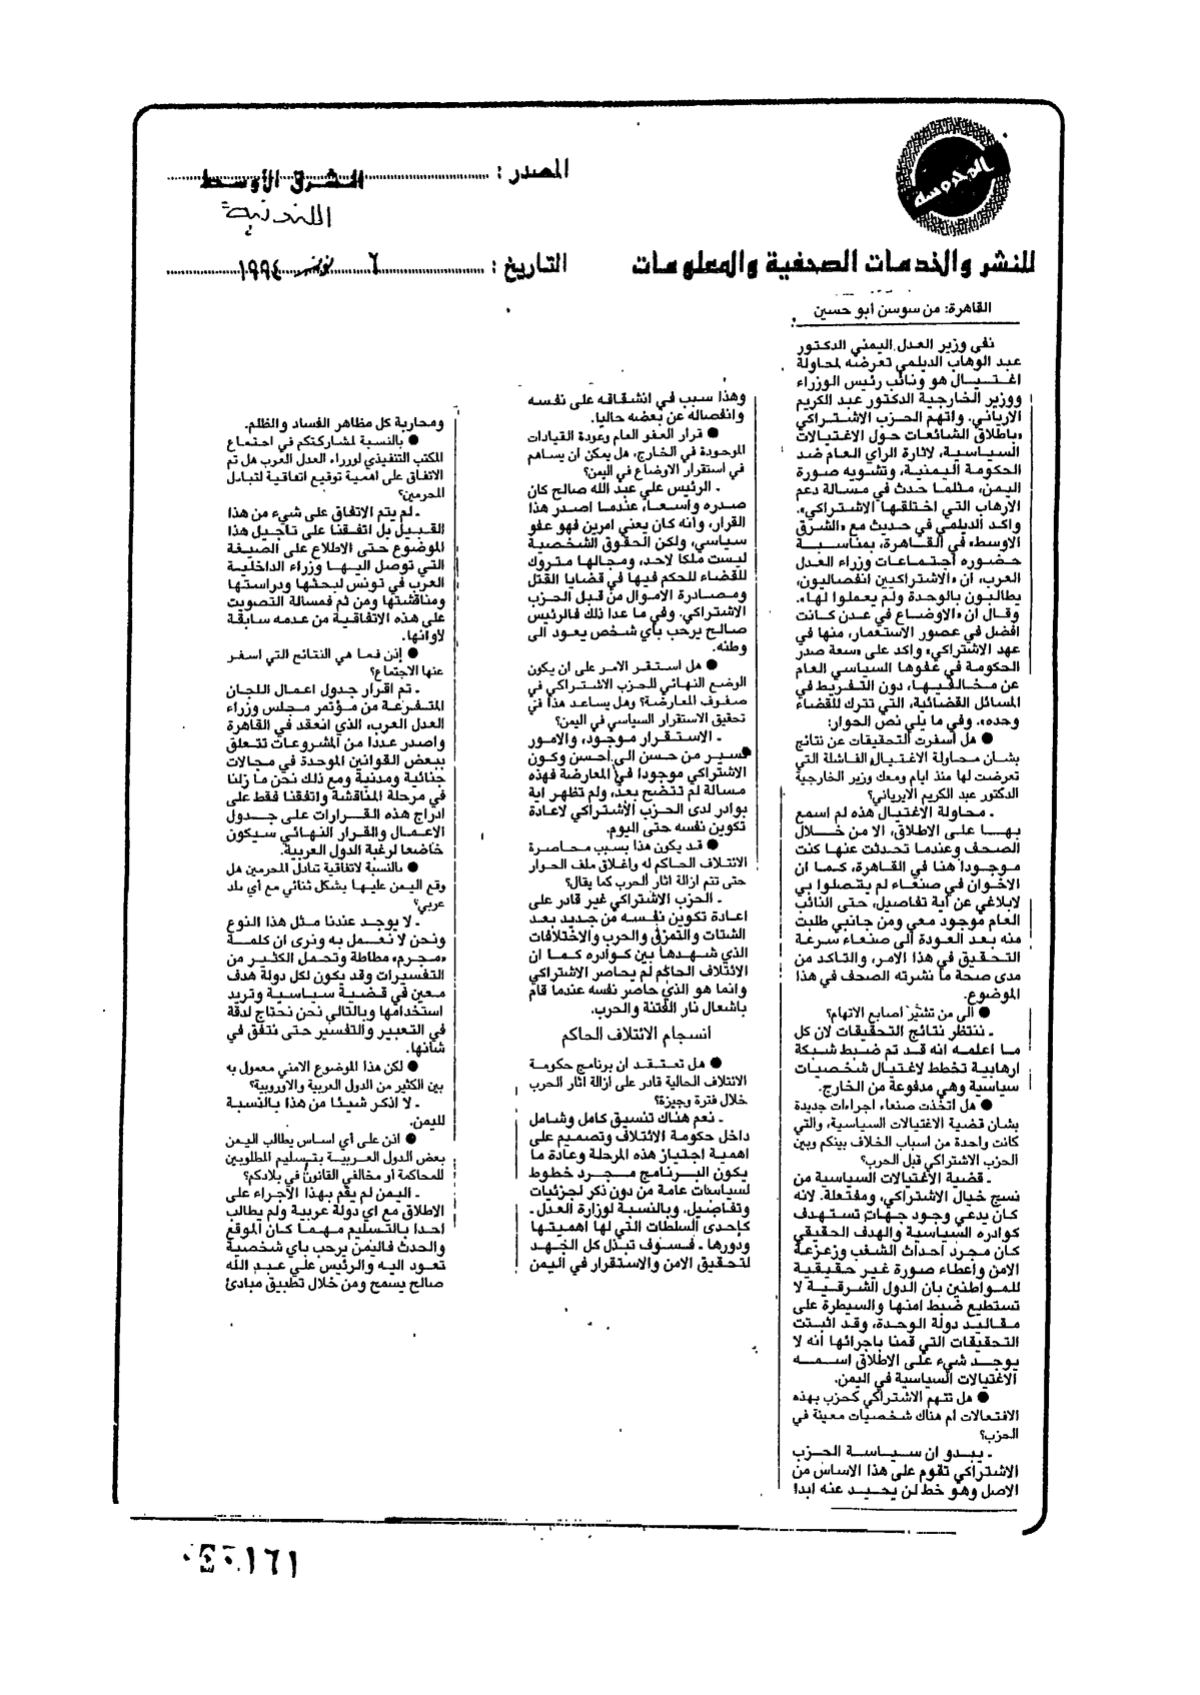 المحروسة
المصدر : الشرق الأوسط
اللندنية
للنشر والخدمات الصحفية والمعلومات
التاريخ : ٦ نوفمبر ١٩٩٤
القاهرة: من سوسن ابو حسين
نفى وزير العدل اليمني الدكتور
عبد الوهاب الديلمي تعرضه لمحاولة
اغتيال هو ونائب رئيس الوزراء
ووزير الخارجية الدكتور عبد الكريم
الارياني. واتهم الحزب الاشتراكي
«باطلاق الشائعات حول الاغتيالات
السياسية، لاثارة الرأي العام ضد
الحكومة اليمنية، وتشويه صورة
اليمن، مثلما حدث في مسالة دعم
الارهاب التي اختلقها الاشتراكي».
واكد الديلمي في حديث مع «الشرق
الاوسط» في القاهرة، بمناسبة
حضوره اجتماعات وزراء العدل
العرب، ان «الاشتراكيين انفصاليون،
يطالبون بالوحدة ولم يعملوا لها».
وقال ان «الاوضاع في عدن كانت
افضل في عصور الاستعمار، منها في
عهد الاشتراكي» واكد على «سعة صدر
الحكومة في عفوها السياسي العام
عن مخالفيها، دون التفريط في
المسائل القضائية، التي تترك للقضاء
وحده». وفي ما يلي نص الحوار:
● هل أسفرت التحقيقات عن نتائج
بشان محاولة الاغتيال الفاشلة التي
تعرضت لها منذ ايام ومعك وزير الخارجية
الدكتور عبد الكريم الايرياني؟
ـ محاولة الاغتيال هذه لم اسمع
بها على الاطلاق، الا من خلال
الصحف وعندما تحدثت عنها كنت
موجودا هنا في القاهرة، كما ان
الاخوان في صنعاء لم يتصلوا بي
لابلاغي عن أية تفاصيل، حتى النائب
العام موجود معي ومن جانبي طلبت
منه بعد العودة الى صنعاء سرعة
التحقيق في هذا الامر، والتاكد من
مدى صحة ما نشرته الصحف في هذا
الموضوع.
● الى من تشير اصابع الاتهام؟
ـ ننتظر نتائج التحقيقات لان كل
ما اعلمه انه قد تم ضبط شبكة
ارهابية تخطط لاغتيال شخصيات
سياسية وهي مدفوعة من الخارج.
● هل اتخذت صنعاء اجراءات جديدة
بشان قضية الاغتيالات السياسية، والتي
كانت واحدة من اسباب الخلاف بينكم وبين
الحزب الاشتراكي قبل الحرب؟
ـ قضية الاغتيالات السياسية من
نسج خيال الاشتراكي، ومفتعلة. لانه
كان يدعي وجود جهات تستهدف
كوادره السياسية والهدف الحقيقي
كان مجرد احداث الشغب وزعزعة
الامن واعطاء صورة غير حقيقية
للمواطنين بان الدول الشرقية لا
تستطيع ضبط امنها والسيطرة على
مقاليد دولة الوحدة، وقد اثبتت
التحقيقات التي قمنا باجرائها أنه لا
يوجد شيء على الاطلاق اسمه
الاغتيالات السياسية في اليمن.
● هل تتهم الاشتراكي كحزب بهذه
الافتعالات ام هناك شخصيات معينة في
الحزب؟
ـ يبدو ان سياسة الحزب
الاشتراكي تقوم على هذا الاساس من
الاصل وهو خط لن يحيد عنه ابدا
وهذا سبب في انشقاقه على نفسه
وانفصاله عن بعضه حاليا.
● قرار العفو العام وعودة القيادات
الموجودة في الخارج، هل يمكن ان يساهم
في استقرار الاوضاع في اليمن؟
ـ الرئيس علي عبد الله صالح كان
صدره واسعا، عندما اصدر هذا
القرار، وأنه كان يعني امرين فهو عفو
سياسي، ولكن الحقوق الشخصية
ليست ملكا لاحد، ومجالها متروك
للقضاء للحكم فيها في قضايا القتل
ومصادرة الاموال من قبل الحزب
الاشتراكي. وفي ما عدا ذلك فالرئيس
صالح يرحب باي شخص يعود الى
وطنه.
● هل استقر الامر على ان يكون
الوضع النهائي للحزب الاشتراكي في
صفوف المعارضة؟ وهل يساعد هذا في
تحقيق الاستقرار السياسي في اليمن؟
ـ الاستقرار موجود، والامور
تسير من حسن الى احسن وكون
الاشتراكي موجودا في المعارضة فهذه
مسالة لم تتضح بعد، ولم تظهر اية
بوادر لدى الحزب الاشتراكي لاعادة
تكوين نفسه حتى اليوم.
● قد يكون هذا بسبب محاصرة
الائتلاف الحاكم له وإغلاق ملف الحوار
حتى تتم ازالة اثار الحرب كما يقال؟
ـ الحزب الاشتراكي غير قادر على
اعادة تكوين نفسه من جديد بعد
الشتات والتمزق والحرب والاختلافات
الذي شهدها بين كوادره كما ان
الائتلاف الحاكم لم يحاصر الاشتراكي
وانما هو الذي حاصر نفسه عندما قام
باشعال نار الفتنة والحرب.
انسجام الائتلاف الحاكم
● هل تعتقد ان برنامج حكومة
الائتلاف الحالية قادر على ازالة اثار الحرب
خلال فترة وجيزة؟
ـ نعم هناك تنسيق كامل وشامل
داخل حكومة الائتلاف وتصميم على
اهمية اجتياز هذه المرحلة وعادة ما
يكون البرنامج مجرد خطوط
لسياسات عامة من دون ذكر لجزئيات
وتفاصيل، وبالنسبة لوزارة العدل ـ
كإحدى السلطات التي لها اهميتها
ودورها ـ فسوف تبذل كل الجهد
لتحقيق الامن والاستقرار في اليمن
ومحاربة كل مظاهر الفساد والظلم.
● بالنسبة لمشاركتكم في اجتماع
المكتب التنفيذي لوزراء العدل العرب هل تم
الاتفاق على اهمية توقيع اتفاقية لتبادل
المجرمين؟
ـ لم يتم الاتفاق على شيء من هذا
القبيل بل اتفقنا على تأجيل هذا
الموضوع حتى الاطلاع على الصيغة
التي توصل اليها وزراء الداخلية
العرب في تونس لبحثها ودراستها
ومناقشتها ومن ثم فمسالة التصويت
على هذه الاتفاقية من عدمه سابقة
لاوانها.
● إذن فما هي النتائج التي اسفر
عنها الاجتماع؟
ـ تم اقرار جدول اعمال اللجان
المتفرعة من مؤتمر مجلس وزراء
العدل العرب، الذي انعقد في القاهرة
واصدر عددا من المشروعات تتعلق
ببعض القوانين الموحدة في مجالات
جنائية ومدنية ومع ذلك نحن ما زلنا
في مرحلة المناقشة واتفقنا فقط على
ادراج هذه القرارات على جدول
الاعمال والقرار النهائي سيكون
خاضعا لرغبة الدول العربية.
● بالنسبة لاتفاقية تبادل المجرمين هل
وقع اليمن عليها بشكل ثنائي مع أي بلد
عربي؟
ـ لا يوجد عندنا مثل هذا النوع
ونحن لا نعمل به ونرى ان كلمة
«مجرم» مطاطة وتحمل الكثير من
التفسيرات وقد يكون لكل دولة هدف
معين في قضية سياسية وتريد
استخدامها وبالتالي نحن نحتاج لدقة
في التعبير والتفسير حتى نتفق في
شانها.
● لكن هذا الموضوع الامني معمول به
بين الكثير من الدول العربية والاوروبية؟
ـ لا اذكر شيئا من هذا بالنسبة
لليمن.
● اذن على أي اساس يطالب اليمن
بعض الدول العربية بتسليم المطلوبين
للمحاكمة او مخالفي القانون في بلادكم؟
ـ اليمن لم يقم بهذا الاجراء على
الاطلاق مع اي دولة عربية ولم يطالب
احدا بالتسليم مهما كان الموقع
والحدث فاليمن يرحب باي شخصية
تعود اليه والرئيس علي عبد الله
صالح يسمح ومن خلال تطبيق مبادئ
١٦١